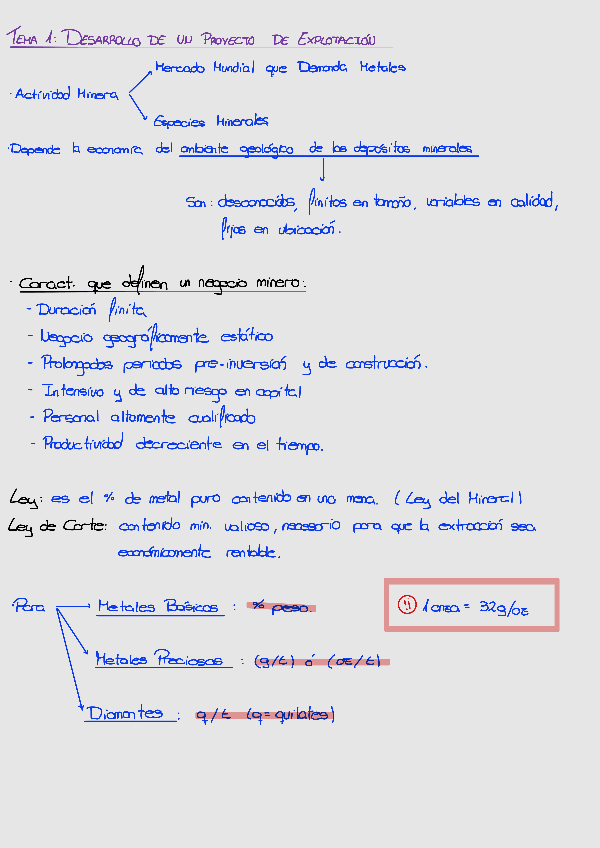 TEMA 1: DESARROLLO DE UN PROYECTO DE EXPLOTACIÓN
Mercado Mundial que Demanda Metales
· Actividad Minera
Especies Minerales
· Depende la economía del ambiente geológico de los depósitos minerales
Son: desconocidos, finitos en tamaño, variables en calidad,
fijos en ubicación.
· Caract. que definen un negocio minero:
- Duración finita
- Negocio geográficamente estático
- Prolongados periodos pre-inversión y de construcción.
- Intensivo y de alto riesgo en capital
- Personal altamente cualificado
- Productividad decreciente en el tiempo.
Ley: es el % de metal puro contenido en una mena. (Ley del Mineral)
Ley de Corte: contenido min. valioso, necesario para que la extracción sea
económicamente rentable.
Para Metales Básicos : % peso.
!! 1 onza = 32g/oz
Metales Preciosos : (g/t) ó (oz/t)
Diamantes : q/t (q=quilates)